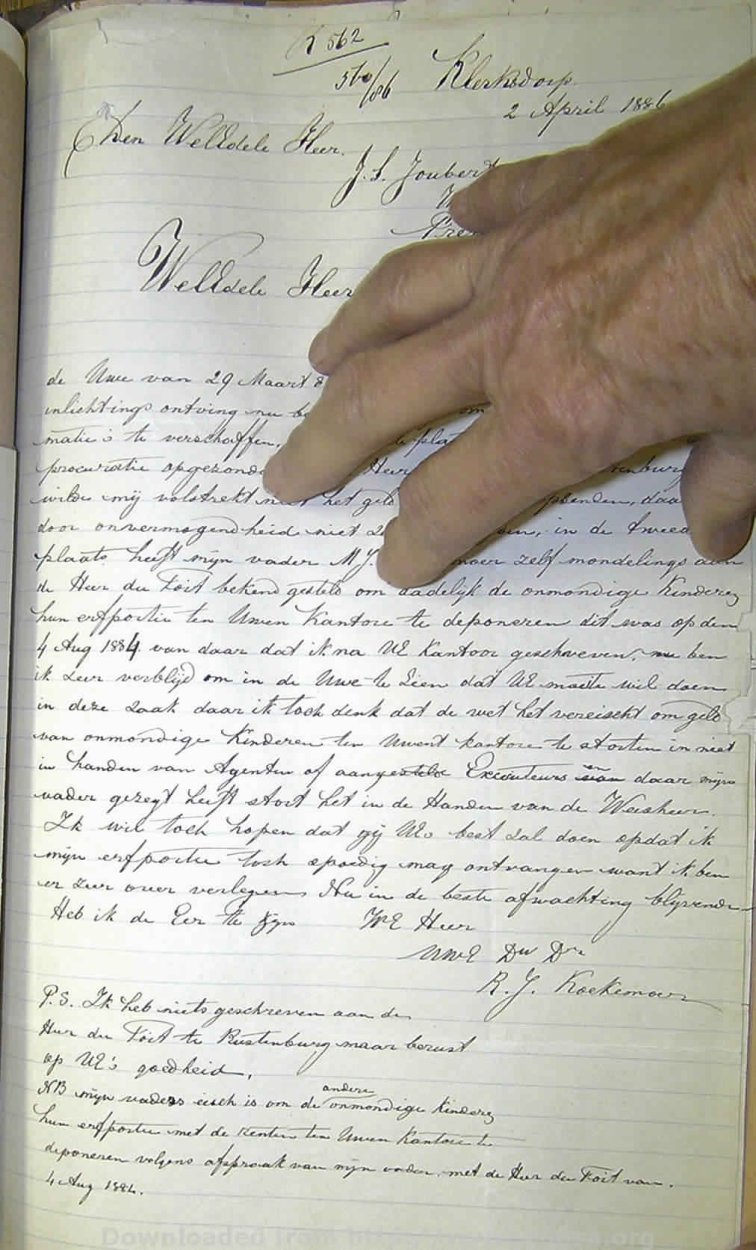 R 562
560/86 Klerksdorp
2 April 1886
Den WelEdele Heer
J. S. Joubert
Pre
WelEdele Heer
de Uwe van 29 Maart
inlichtings ontving nu
matie's te verschaffen, te pla
procuratie opgezonde Heer enburg
wilde mij volstrekt niet het geld zenden, daar
door onvermogendheid niet in de tweede
plaats heeft mijn vader M J. moer zelf mondelings aan
de Heer du Toit bekend gesteld om dadelijk de onmondige Kinders
hun erfportie ten Uwen Kantore te deponeren dit was op den
4 Aug 1884 van daar dat ik na UE Kantoor geschreven, nu ben
ik zeer verblijd om in de Uwe te zien dat UE moeite wil doen
in deze zaak daar ik toch denk dat de wet het vereischt om geld
van onmondige Kinderen ten Uwent kantore te storten in niet
in handen van Agenten of aangestelde Excuuteurs en daar mijn
vader gezegt heeft stort het in de Handen van de Weesheer.
Ik wil toch hopen dat gij UEs best zal doen opdat ik
mijn erfportie toch spoedig mag ontvangen want ik ben
er zeer over verlegen. Nu in de beste afwachting blijvende
Heb ik de Eer te zijn WE Heer
UwE Dw Dr
R. J. Koekemoer
P.S. Ik heb niets geschreven aan de
Heer du Toit te Rustenburg maar berust
op UE's goedheid.
NB mijn vaders eisch is om de andere onmondige kinders
hun erfportie met de renten ten Uwen Kantore te
deponeren volgens afspraak van mijn vader, met de Heer du Toit van
4 Aug 1884.
Downloaded from